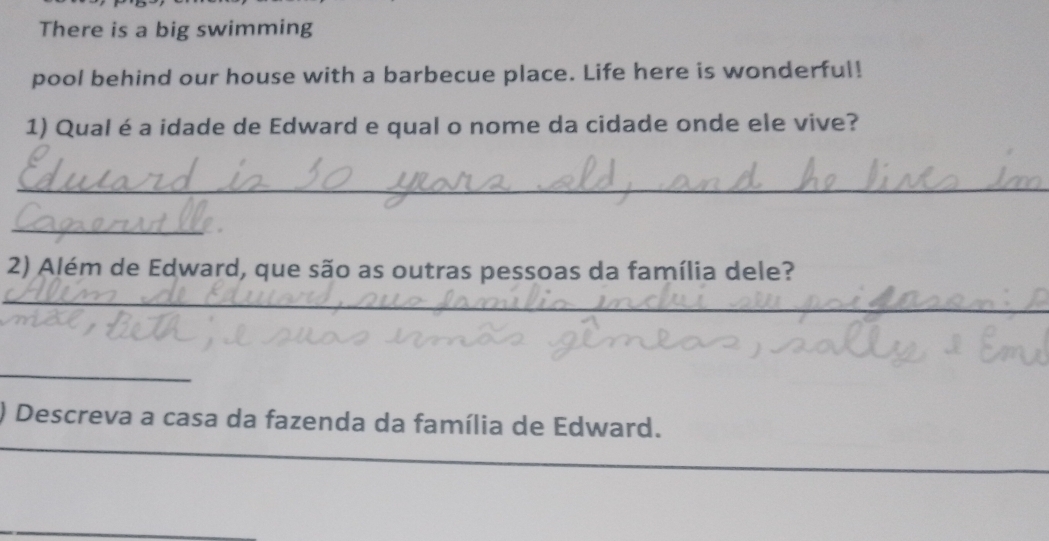 There is a big swimming
pool behind our house with a barbecue place. Life here is wonderful!
1) Qual é a idade de Edward e qual o nome da cidade onde ele vive?
Edward is 30 years old, and he lives in
Caperville.
2) Além de Edward, que são as outras pessoas da família dele?
Além de Edward, sua família inclui seu pai
mãe, Beth; e suas irmãs gêmeas, sally e
) Descreva a casa da fazenda da família de Edward.